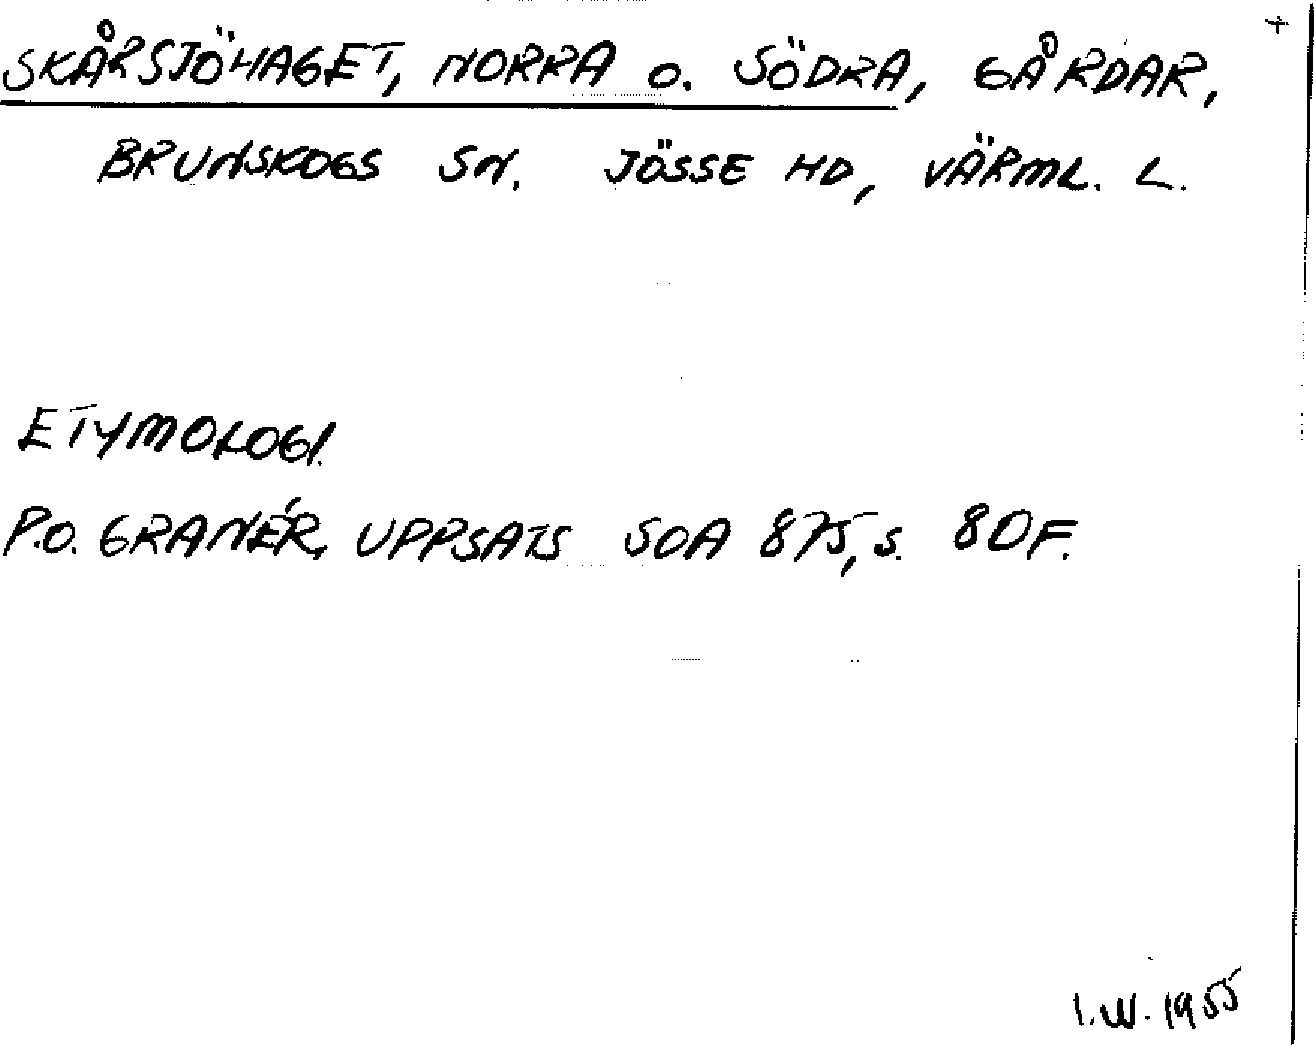 +
SKÅRSJÖHAGET, NORRA O. SÖDRA, GÅRDAR,
BRUNSKOGS SN. JÖSSE HD, VÄRML. L.
ETYMOLOGI.
P.O. GRANÉR, UPPSATS SOA 875, S. 80F.
I.W. 1955